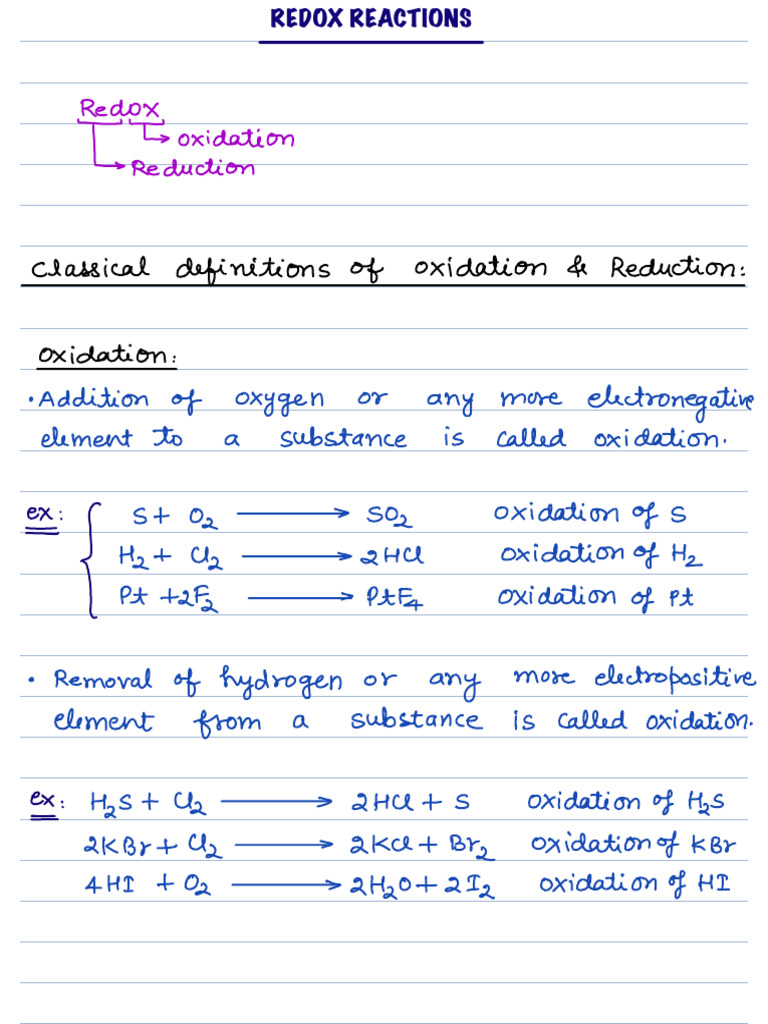 REDOX REACTIONS
Redox
oxidation
Reduction
Classical definitions of oxidation & Reduction:
oxidation:
• Addition of oxygen or any more electronegative
element to a substance is called oxidation.
ex: S + O2 ⟶ SO2 oxidation of S
H2 + Cl2 ⟶ 2HCl oxidation of H2
Pt + 2F2 ⟶ PtF4 oxidation of Pt
• Removal of hydrogen or any more electropositive
element from a substance is called oxidation.
ex: H2S + Cl2 ⟶ 2HCl + S oxidation of H2S
2KBr + Cl2 ⟶ 2KCl + Br2 oxidation of KBr
4HI + O2 ⟶ 2H2O + 2I2 oxidation of HI